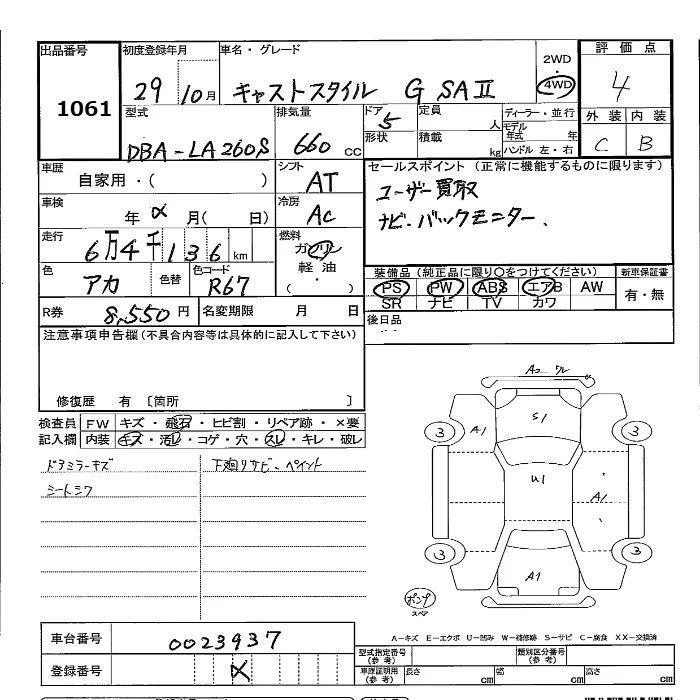 出品番号 初度登録年月 車名・グレード 2WD 評価点
1061 29 10月 キャストスタイル G SAⅡ 4WD 4
型式 排気量 ドア 定員 ディーラー・並行 外装 内装
DBA-LA260S 660cc 5 人 モデル年式 年 C B
形状 積載 kg ハンドル 左・右
車歴 シフト セールスポイント(正常に機能するものに限ります)
自家用・( ) AT ユーザー買取
車検 冷房 ナビ・バックモニター.
年 月( 日) AC
走行 燃料
6万4千136km ガソリン
軽油
( ・ )
色 色替 色コード 装備品(純正品に限り○をつけてください) 新車保証書
アカ R67 PS PW ABS エアB AW 有・無
SR ナビ TV カワ
R券 8,550円 名変期限 月 日 後日品
注意事項申告欄(不具合内容等は具体的に記入して下さい)
修復歴 有〔箇所 〕
検査員 FW キズ・飛石・ヒビ割・リペア跡・×要
記入欄 内装 キズ・汚レ・コゲ・穴・スレ・キレ・破レ
ドラミラーキズ 下廻りサビ、ペイント
シートシワ
A2 ワレ
S1
3 A1 3
U1
A1
3 3
A1
ポンプ
スペア
A-キズ E-エクボ U-凹み W-補修跡 S-サビ C-腐食 XX-交換済
車台番号 0023937 型式指定番号(参考) 類別区分番号(参考)
登録番号 車庫証明用(参考) 長さ cm 幅 cm 高さ cm